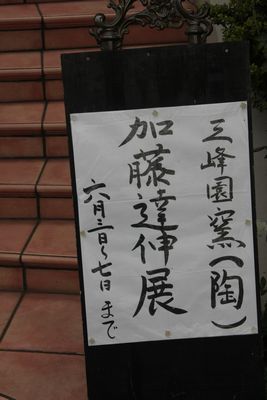 三峰園窯（陶）
加藤達伸展
六月三日〜七日まで